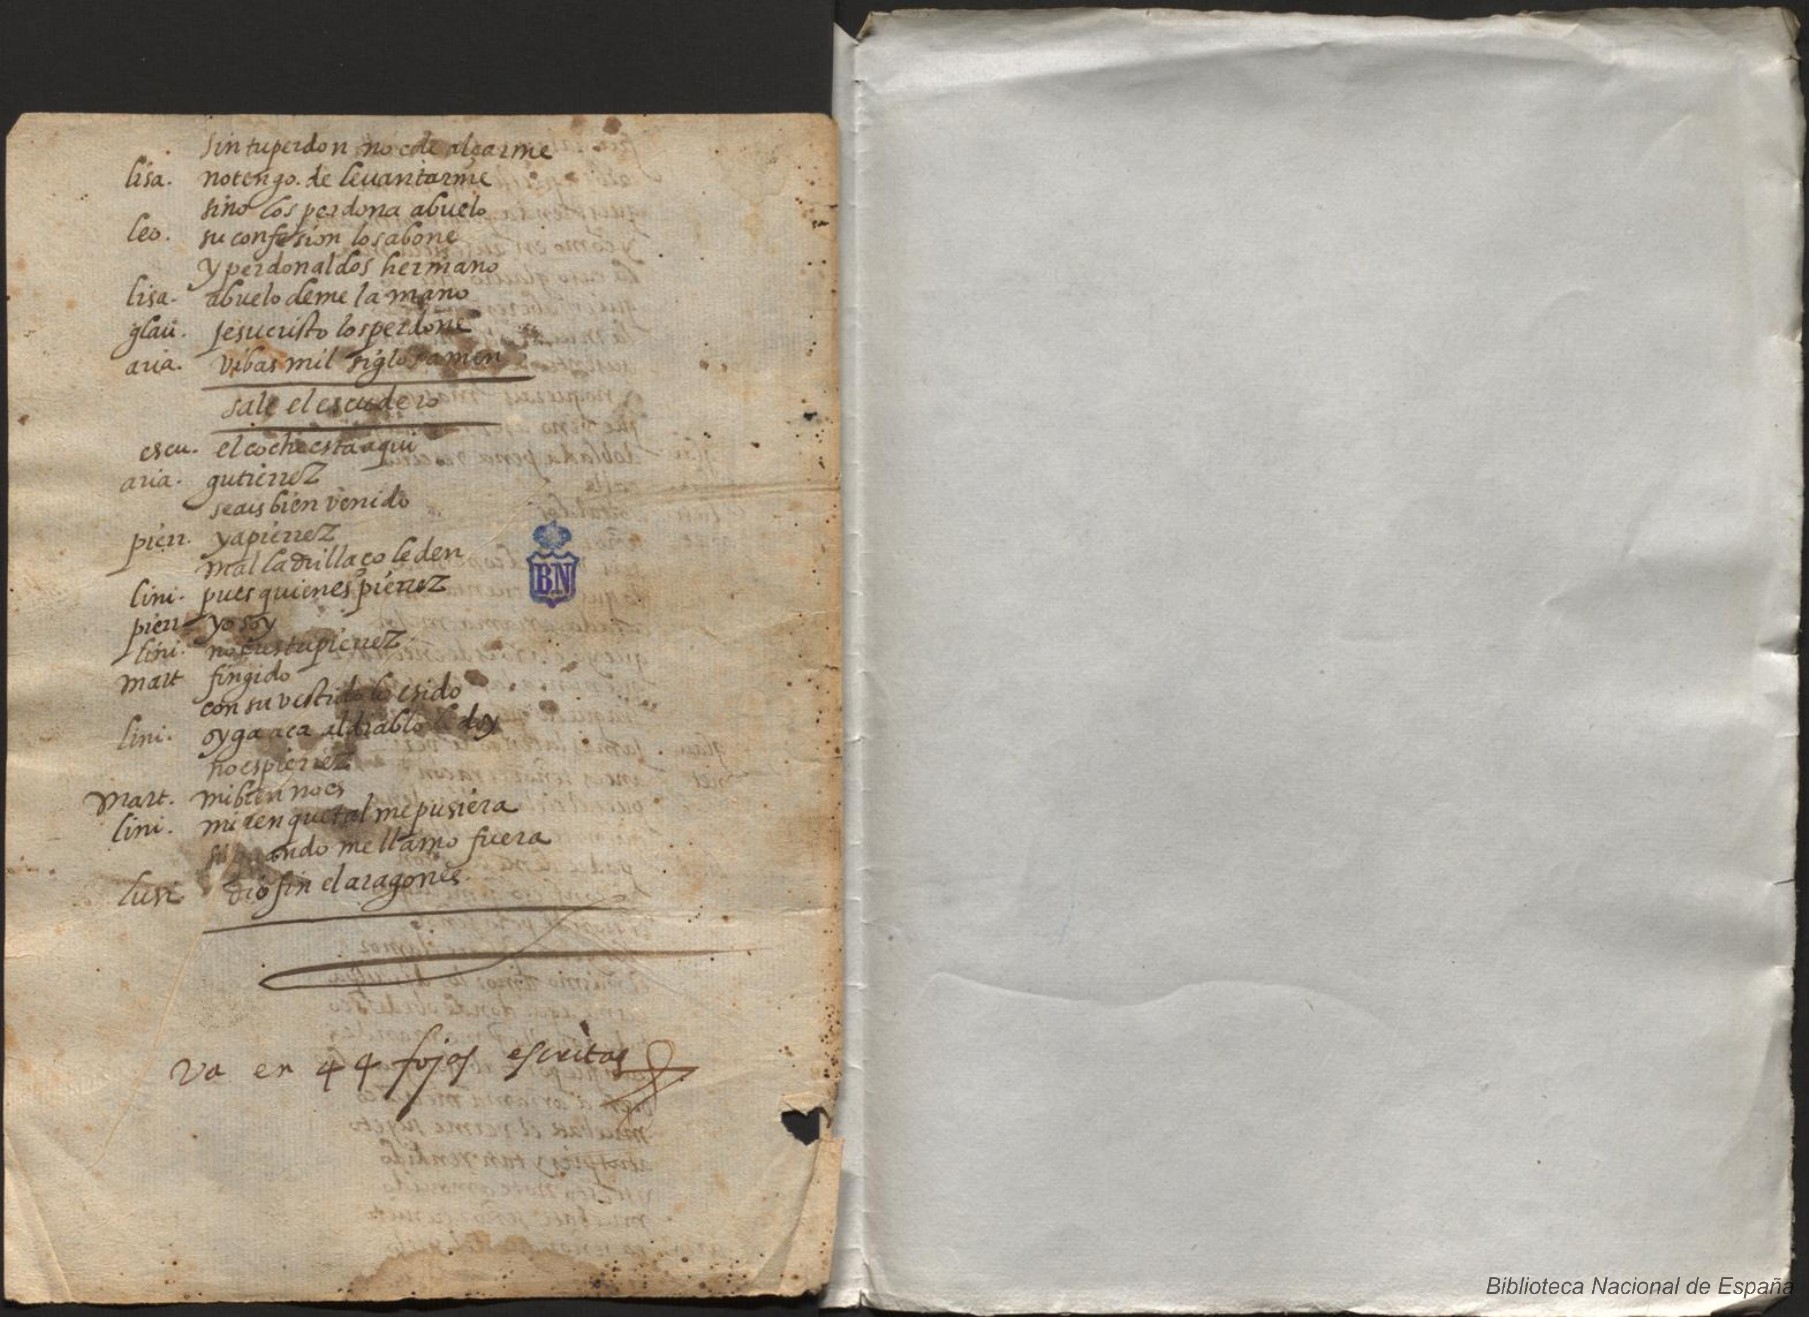 sin tu perdon no e de alçarme
lisa. no tengo de levantarme
sino los perdona abuelo
leo. su confesion los abone
y perdonaldos hermano
lisa. abuelo deme la mano
glau. jesucristo los perdone
aria. vibas mil siglos amen
sale el escudero
escu. el coche esta aqui
aria. gutierrez
seais bien venido
pierr. ya pierrez
mal ladrillaço le den
lini. pues quien es pierrez
pierr yo soy
lini. no eres tu pierrez
mart fingido
con su vestido lo e sido
lini. oyga aca al diablo le doy
no es pierrez
Mart. mi bien no es
lini. miren que tal me pusiera
si quando me llamo fuera
lusi dio fin el aragones.
va en 44 fojas escritas
BN
Biblioteca Nacional de España